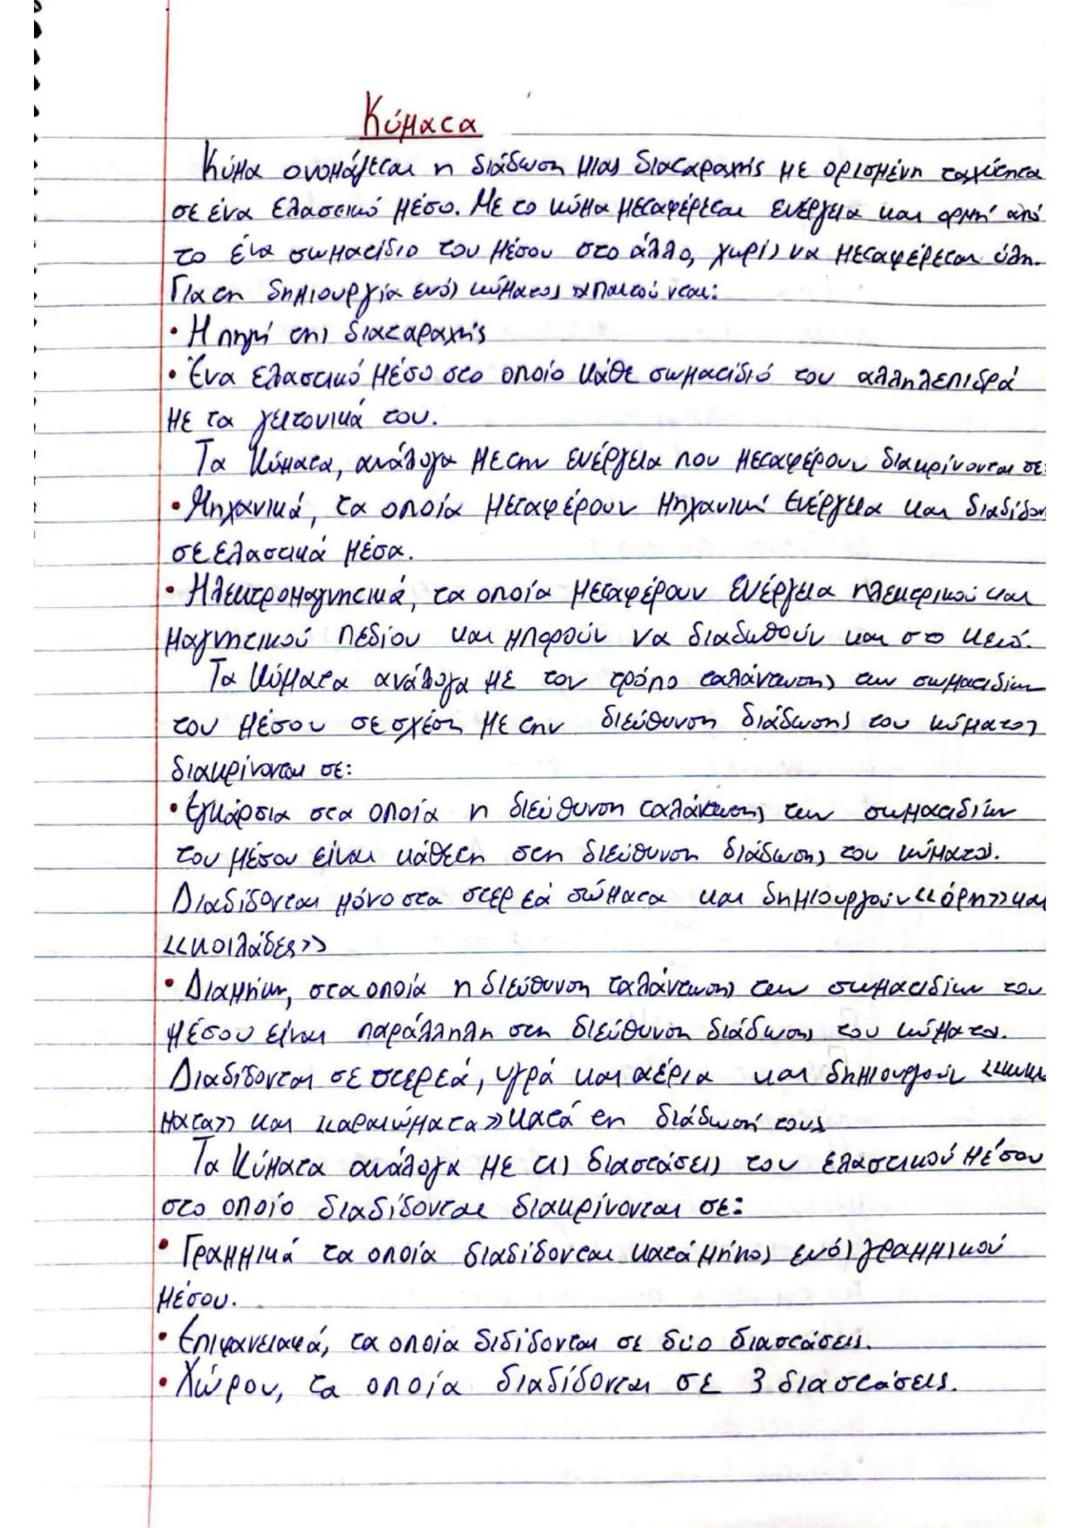 Κύματα
Κύμα ονομάζεται η διάδωση μιας διαταραχής με ορισμένη ταχύτητα
σε ένα ελαστικό μέσο. Με το κύμα μεταφέρεται ενέργεια και ορμή από
το ένα σωματίδιο του μέσου στο άλλο, χωρίς να μεταφέρεται ύλη.
Για τη δημιουργία ενός κύματος απαιτούνται:
• Η πηγή της διαταραχής
• Ένα ελαστικό μέσο στο οποίο κάθε σωματίδιό του αλληλεπιδρά
με τα γειτονικά του.
Τα κύματα, ανάλογα με την ενέργεια που μεταφέρουν διακρίνονται σε:
• Μηχανικά, τα οποία μεταφέρουν μηχανική ενέργεια και διαδίδον
σε ελαστικά μέσα.
• Ηλεκτρομαγνητικά, τα οποία μεταφέρουν ενέργεια ηλεκτρικού και
μαγνητικού πεδίου και μπορούν να διαδωθούν και στο κενό.
Τα κύματα ανάλογα με τον τρόπο ταλάντωσης των σωματιδίων
του μέσου σε σχέση με την διεύθυνση διάδωσης του κύματος
διακρίνονται σε:
• Εγκάρσια στα οποία η διεύθυνση ταλάντωσης των σωματιδίων
του μέσου είναι κάθετη στη διεύθυνση διάδωσης του κύματος.
Διαδίδονται μόνο στα στερεά σώματα και δημιουργούν <<όρη>> και
<<κοιλάδες>>
• Διαμήκη, στα οποία η διεύθυνση ταλάντωσης των σωματιδίων του
μέσου είναι παράλληλη στη διεύθυνση διάδωσης του κύματος.
Διαδίδονται σε στερεά, υγρά και αέρια και δημιουργούν <<πυκνώ
ματα>> και <<αραιώματα>> κατά τη διάδωσή τους
Τα κύματα ανάλογα με τις διαστάσεις του ελαστικού μέσου
στο οποίο διαδίδονται διακρίνονται σε:
• Γραμμικά τα οποία διαδίδονται κατά μήκος ενός γραμμικού
μέσου.
• Επιφανειακά, τα οποία διδίδονται σε δύο διαστάσεις.
• Χώρου, τα οποία διαδίδονται σε 3 διαστάσεις.